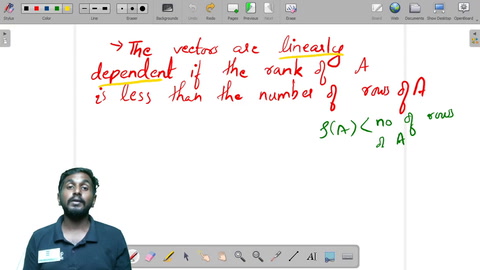 Background
Undo
Redo
Page
Previous
Next
Erase
Boards
Web
Documents
Show Desktop
OpenBoard
→ The vectors are linearly
dependent if the rank of A
is less than the number of rows of A
ρ(A) < no of rows
of A